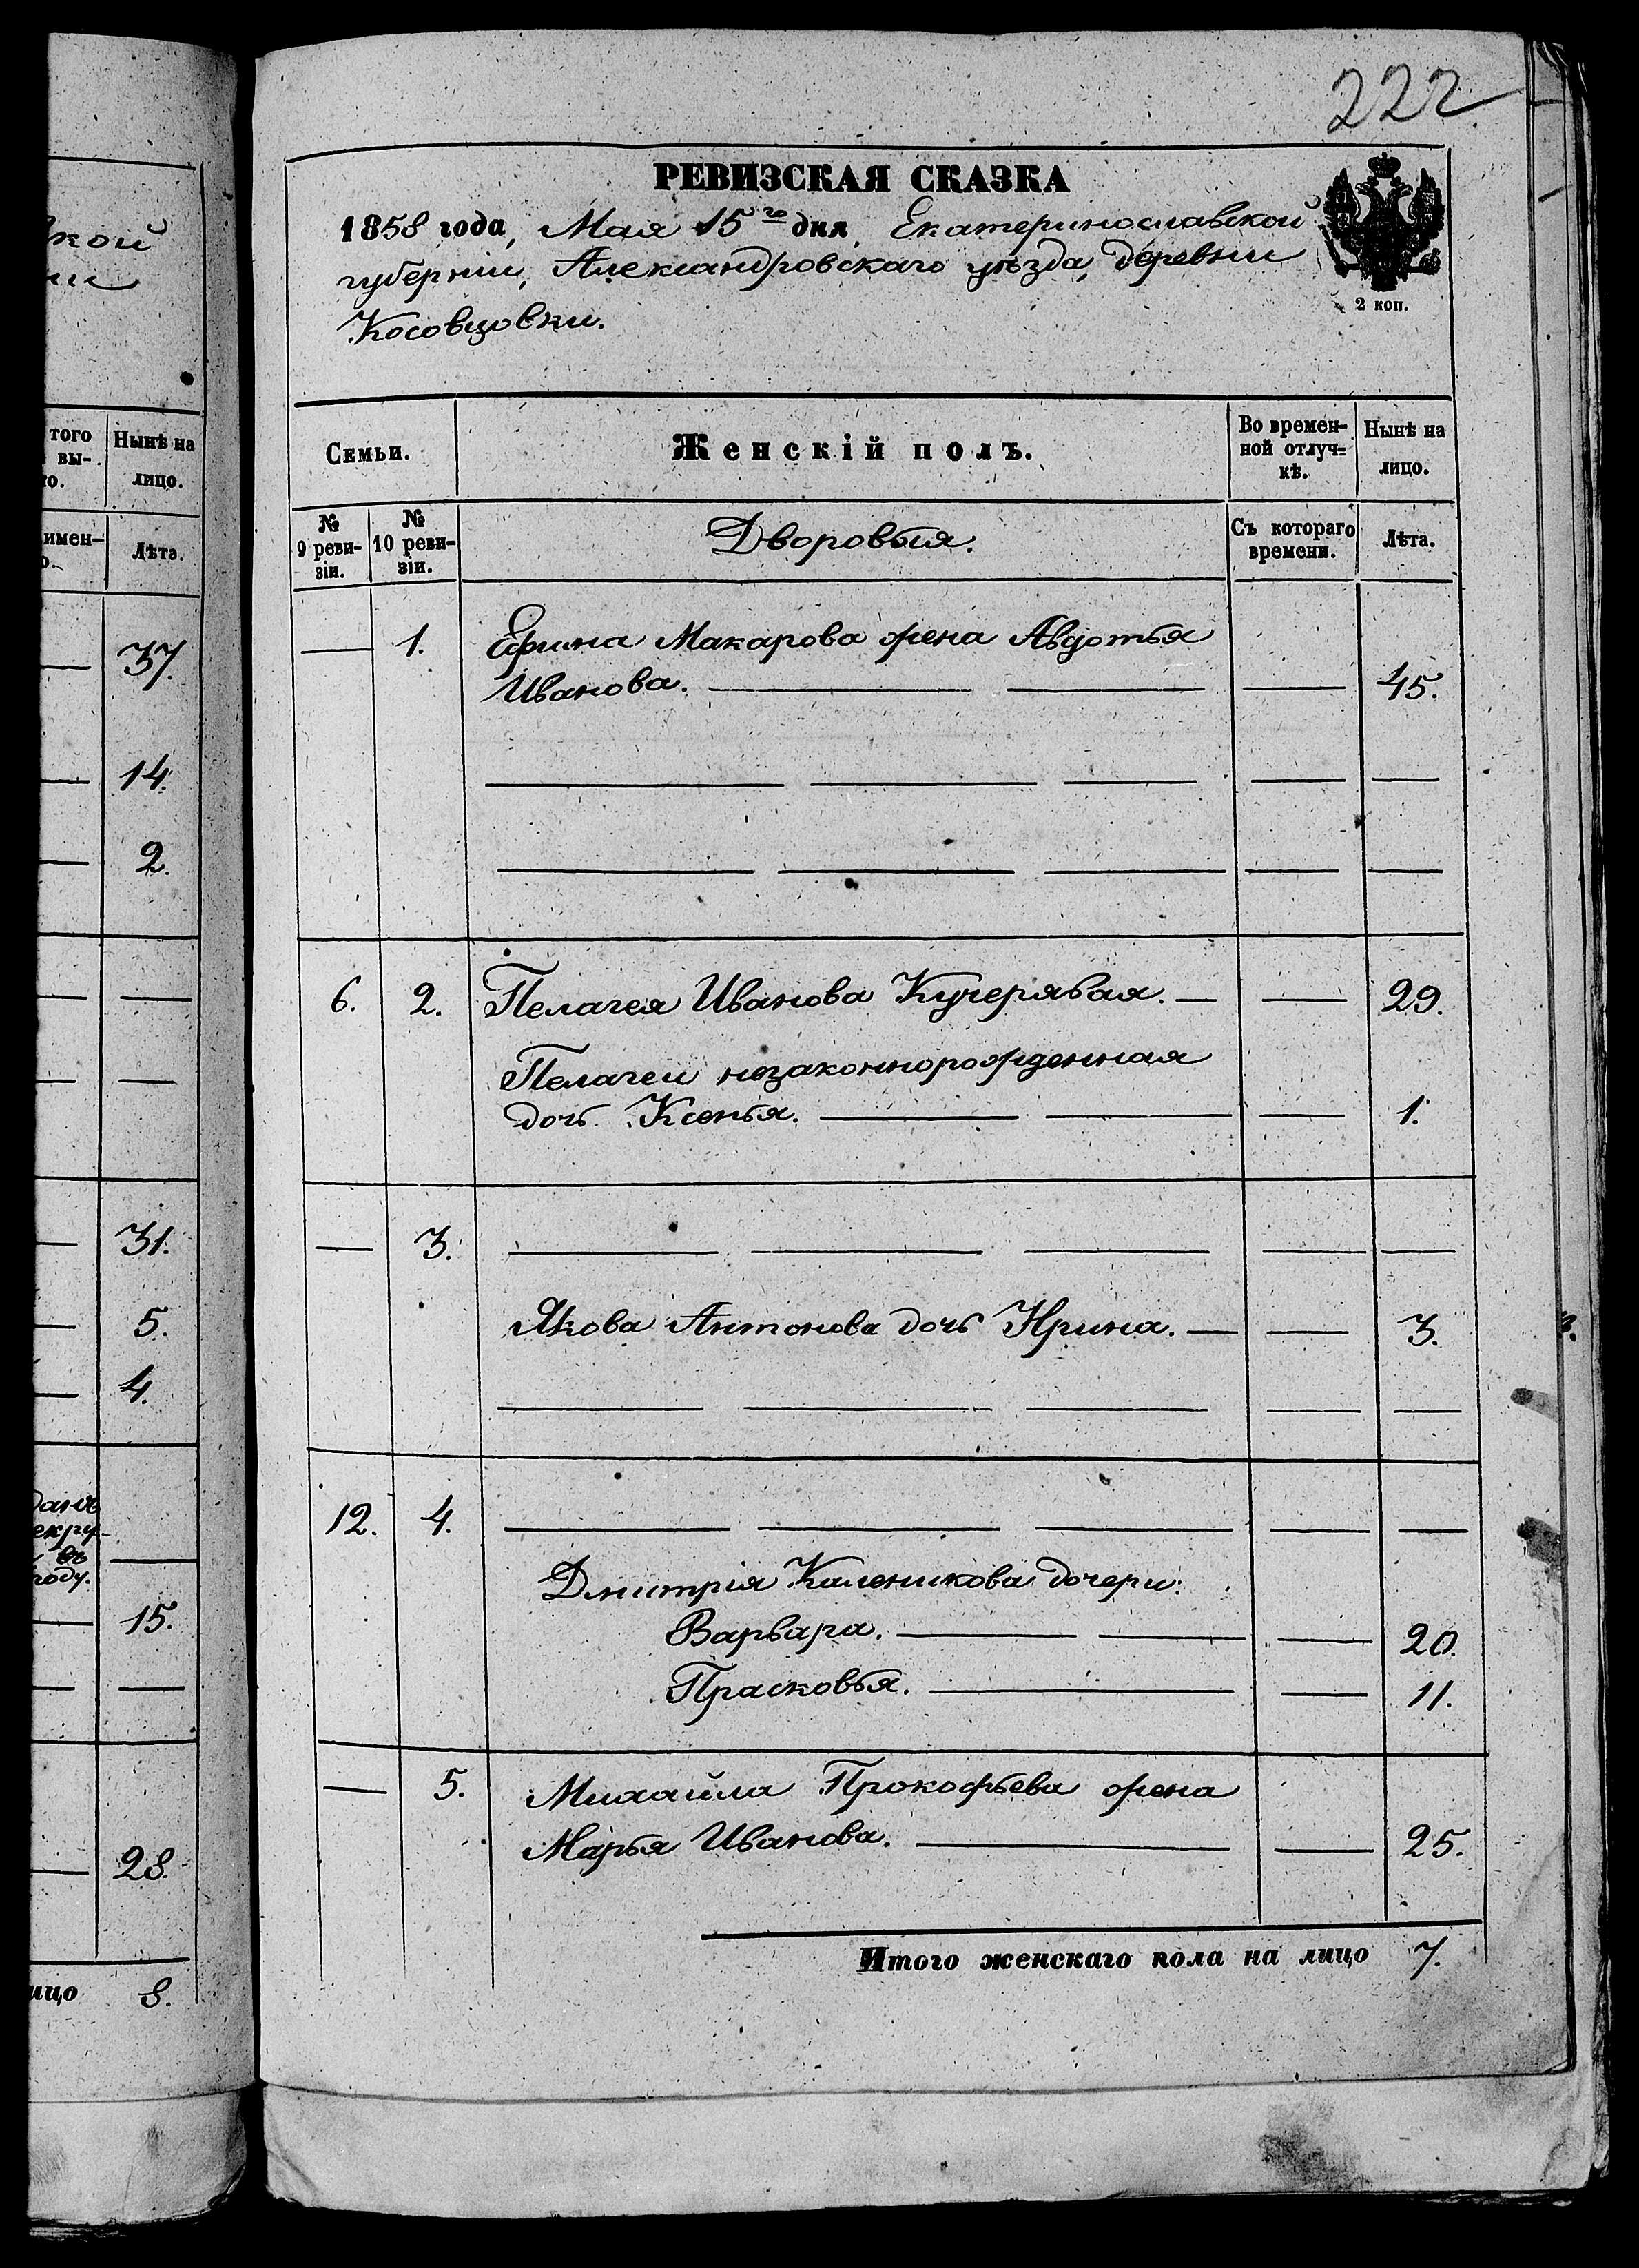 вской
ни
того
вы-
то.
Нынѣ на
лицо.
имен-
о.
Лѣта.
37.
14.
2.
31.
5.
4.
данъ
рекру-
въ
году.
15.
28.
лицо 8.
222
РЕВИЗСКАЯ СКАЗКА
1858 года, Мая 15го дня, Екатеринославской
губерніи, Александровскаго уѣзда, деревни
Косовцовки.
2 коп.
Семьи.
Женскій полъ.
Во времен-
ной отлуч-
кѣ.
Нынѣ на
лицо.
№
9 реви-
зіи.
№
10 реви-
зіи.
Дворовыя.
Съ котораго
времени.
Лѣта.
1. Ефима Макарова жена Авдотья
Иванова. 45.
6. 2. Пелагея Иванова Кучерявая. 29.
Пелагеи незаконнорожденная
дочь Ксенья. 1.
3.
Якова Антонова дочь Ирина. 3.
12. 4.
Дмитрія Каленикова дочери:
Варвара. 20.
Прасковья. 11.
5. Михайла Прокофьева жена
Марья Иванова. 25.
Итого женскаго пола на лицо 7.